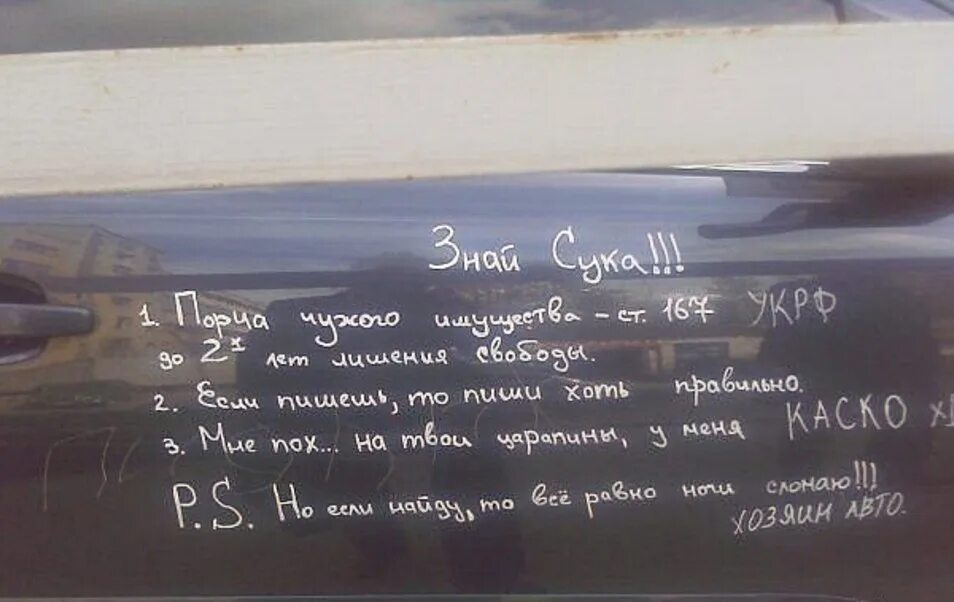 Знай Сука!!!
1. Порча чужого имущества - ст. 167 УКРФ
до 2х лет лишения свободы.
2. Если пишешь, то пиши хоть правильно.
3. Мне пох... на твои царапины, у меня КАСКО
P.S. Но если найду, то всё равно ноги сломаю!!!
ХОЗЯИН АВТО.